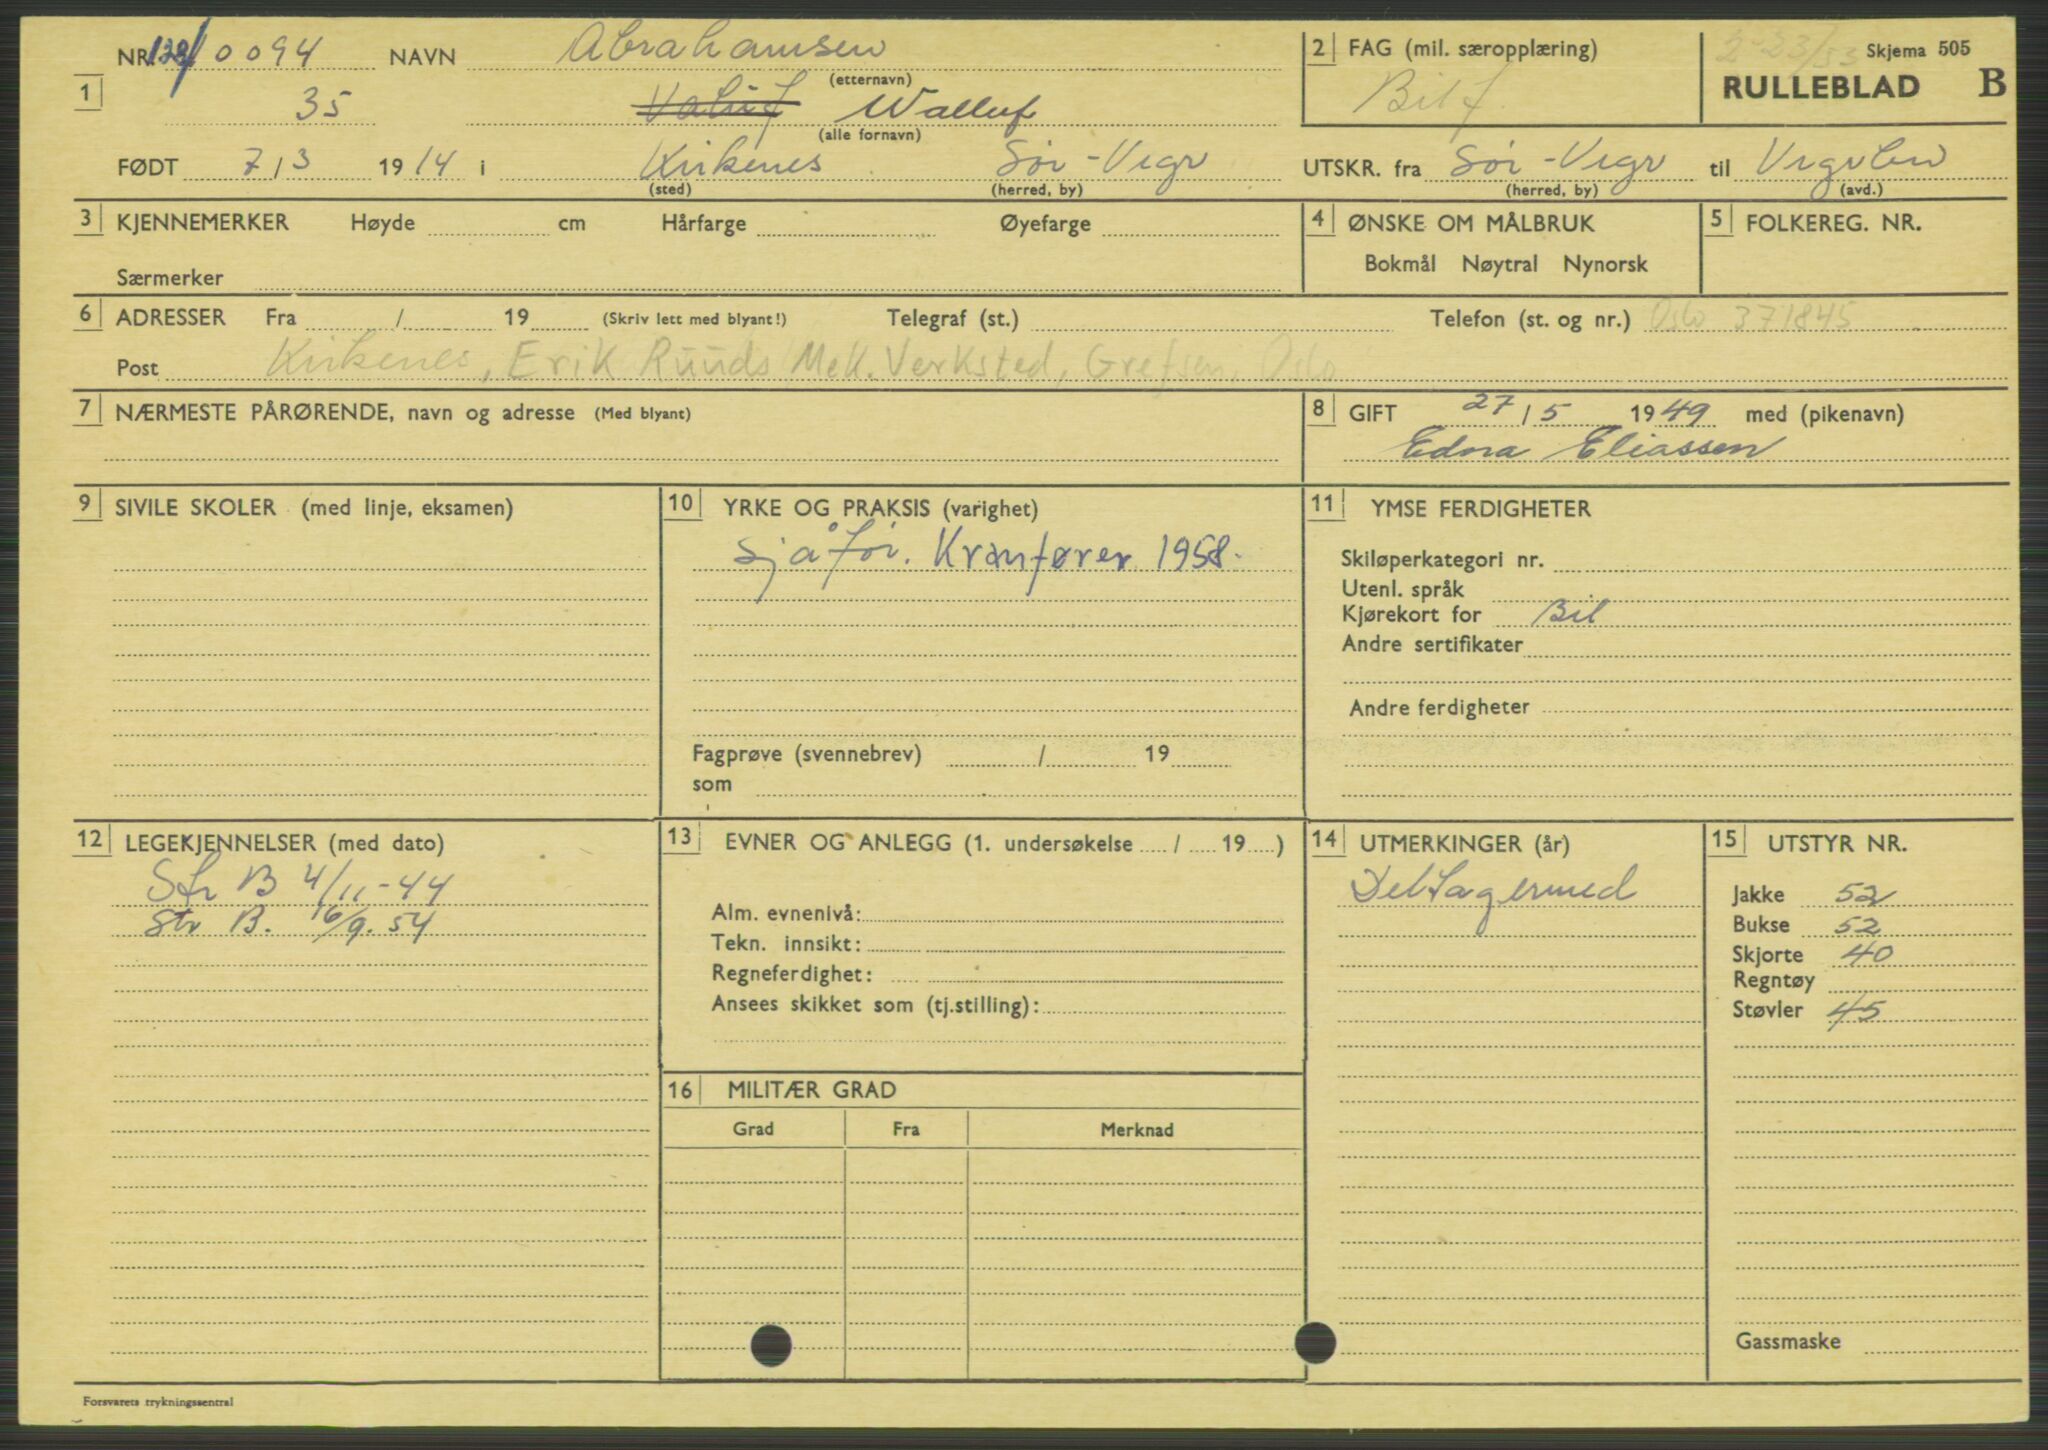 NR. 132/0094 NAVN Abrahamsen
(etternavn)
1 35 Valuf Walluf
(alle fornavn)
FØDT 7/3 1914 i Kirkenes Sør-Vrgr
(sted) (herred, by)
2 FAG (mil. særopplæring)
Bilf.
2-23/53 Skjema 505
RULLEBLAD B
UTSKR. fra Sør-Vrgr til Vrgrbn
(herred, by) (avd.)
3 KJENNEMERKER Høyde cm Hårfarge Øyefarge
Særmerker
4 ØNSKE OM MÅLBRUK
Bokmål Nøytral Nynorsk
5 FOLKEREG. NR.
6 ADRESSER Fra / 19 (Skriv lett med blyant!) Telegraf (st.) Telefon (st. og nr.) Oslo 371845
Post Kirkenes, Erik Ruuds Mek. Verksted, Grefsen, Oslo
7 NÆRMESTE PÅRØRENDE, navn og adresse (Med blyant)
8 GIFT 27/5 1949 med (pikenavn)
Edna Eliassen
9 SIVILE SKOLER (med linje, eksamen)
10 YRKE OG PRAKSIS (varighet)
Sjåfør. Kranfører 1958.
Fagprøve (svennebrev) / 19
som
11 YMSE FERDIGHETER
Skiløperkategori nr.
Utenl. språk
Kjørekort for Bil
Andre sertifikater
Andre ferdigheter
12 LEGEKJENNELSER (med dato)
Str B 4/11-44
Str B. 16/9.54
13 EVNER OG ANLEGG (1. undersøkelse / 19 )
Alm. evnenivå:
Tekn. innsikt:
Regneferdighet:
Ansees skikket som (tj.stilling):
14 UTMERKINGER (år)
Deltagermed
15 UTSTYR NR.
Jakke 52
Bukse 52
Skjorte 40
Regntøy
Støvler 45
Gassmaske
16 MILITÆR GRAD
Grad Fra Merknad
Forsvarets trykningssentral